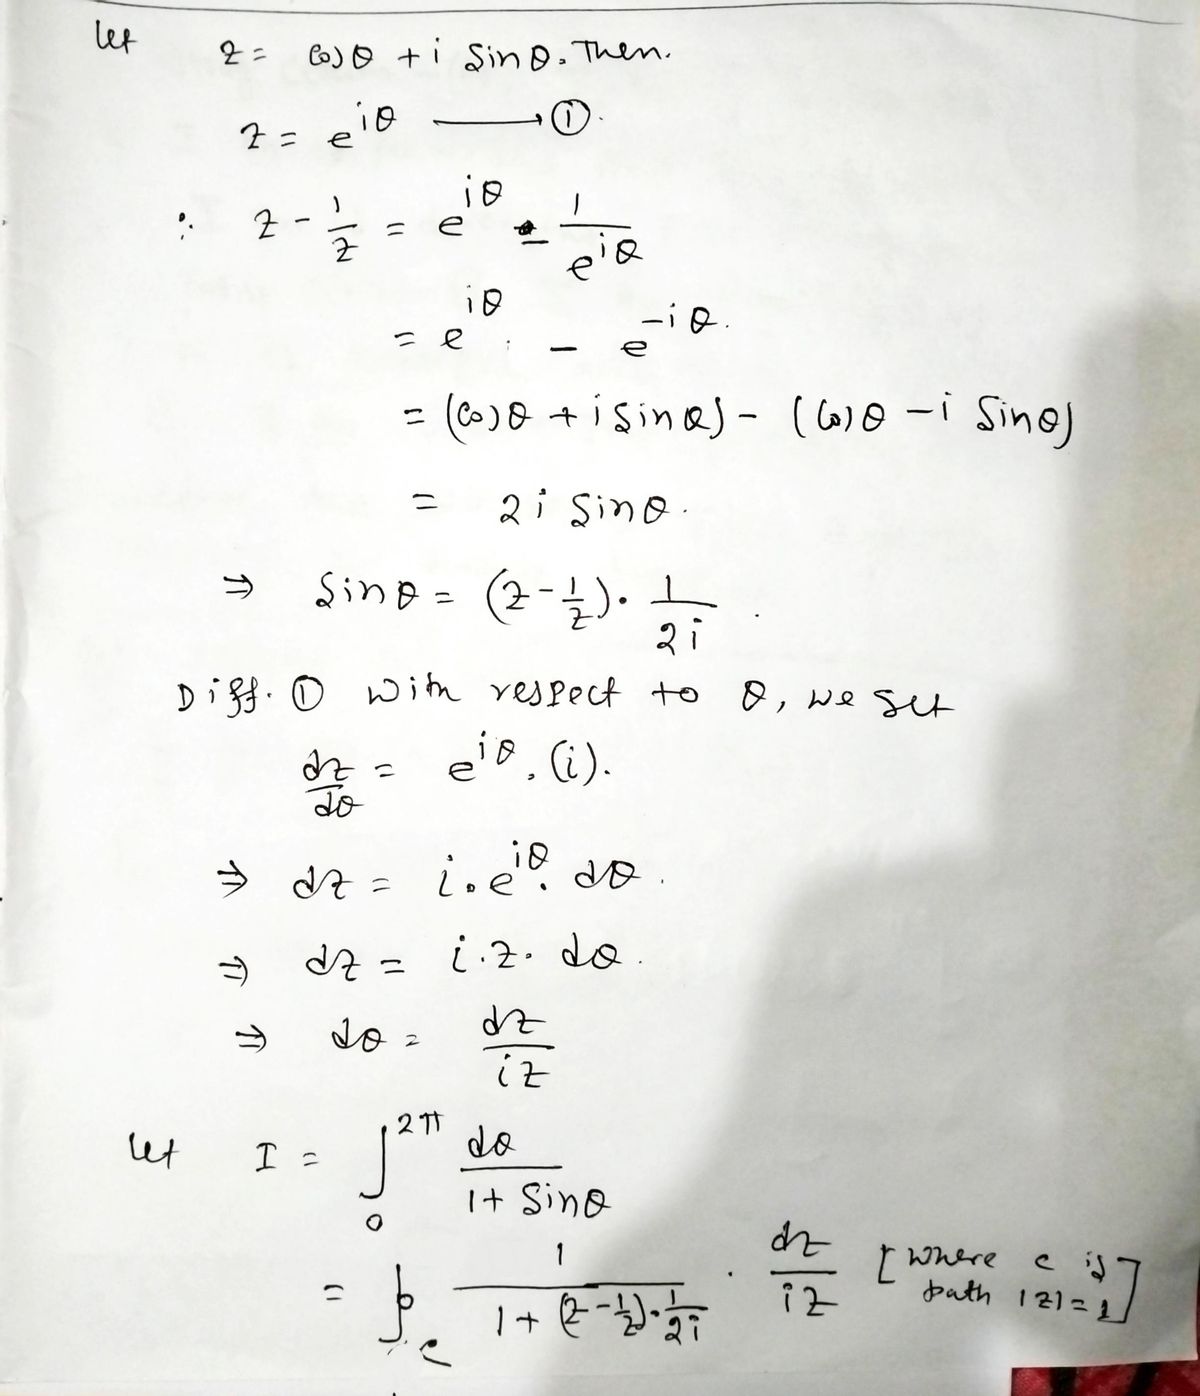 Let z = Cosθ + i Sinθ. Then.
z = e^{iθ} ⟶ ①.
∴ z - 1/z = e^{iθ} - 1/e^{iθ}
= e^{iθ} - e^{-iθ}.
= (Cosθ + i Sinθ) - (Cosθ - i Sinθ)
= 2i Sinθ.
⇒ Sinθ = (z - 1/z) · 1/2i .
Diff. ① with respect to θ, we get
dz/dθ = e^{iθ} . (i).
⇒ dz = i.e^{iθ}. dθ .
⇒ dz = i.z. dθ .
⇒ dθ = dz/iz
Let I = ∫_0^{2π} dθ/(1 + Sinθ)
= ∮_c 1/(1 + (z - 1/z)·1/2i) · dz/iz [where c is path |z| = 1]